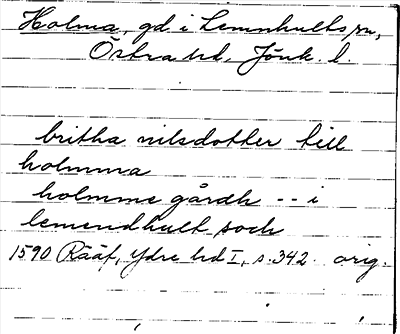 Holma, gd. i Lemnhults sn,
Östra hd, Jönk. l.
britha nilsdotter till
holmma
holmme gårdh -- i
lemendhult soch
1590 Rääf, Ydre hd I, s. 342. orig.